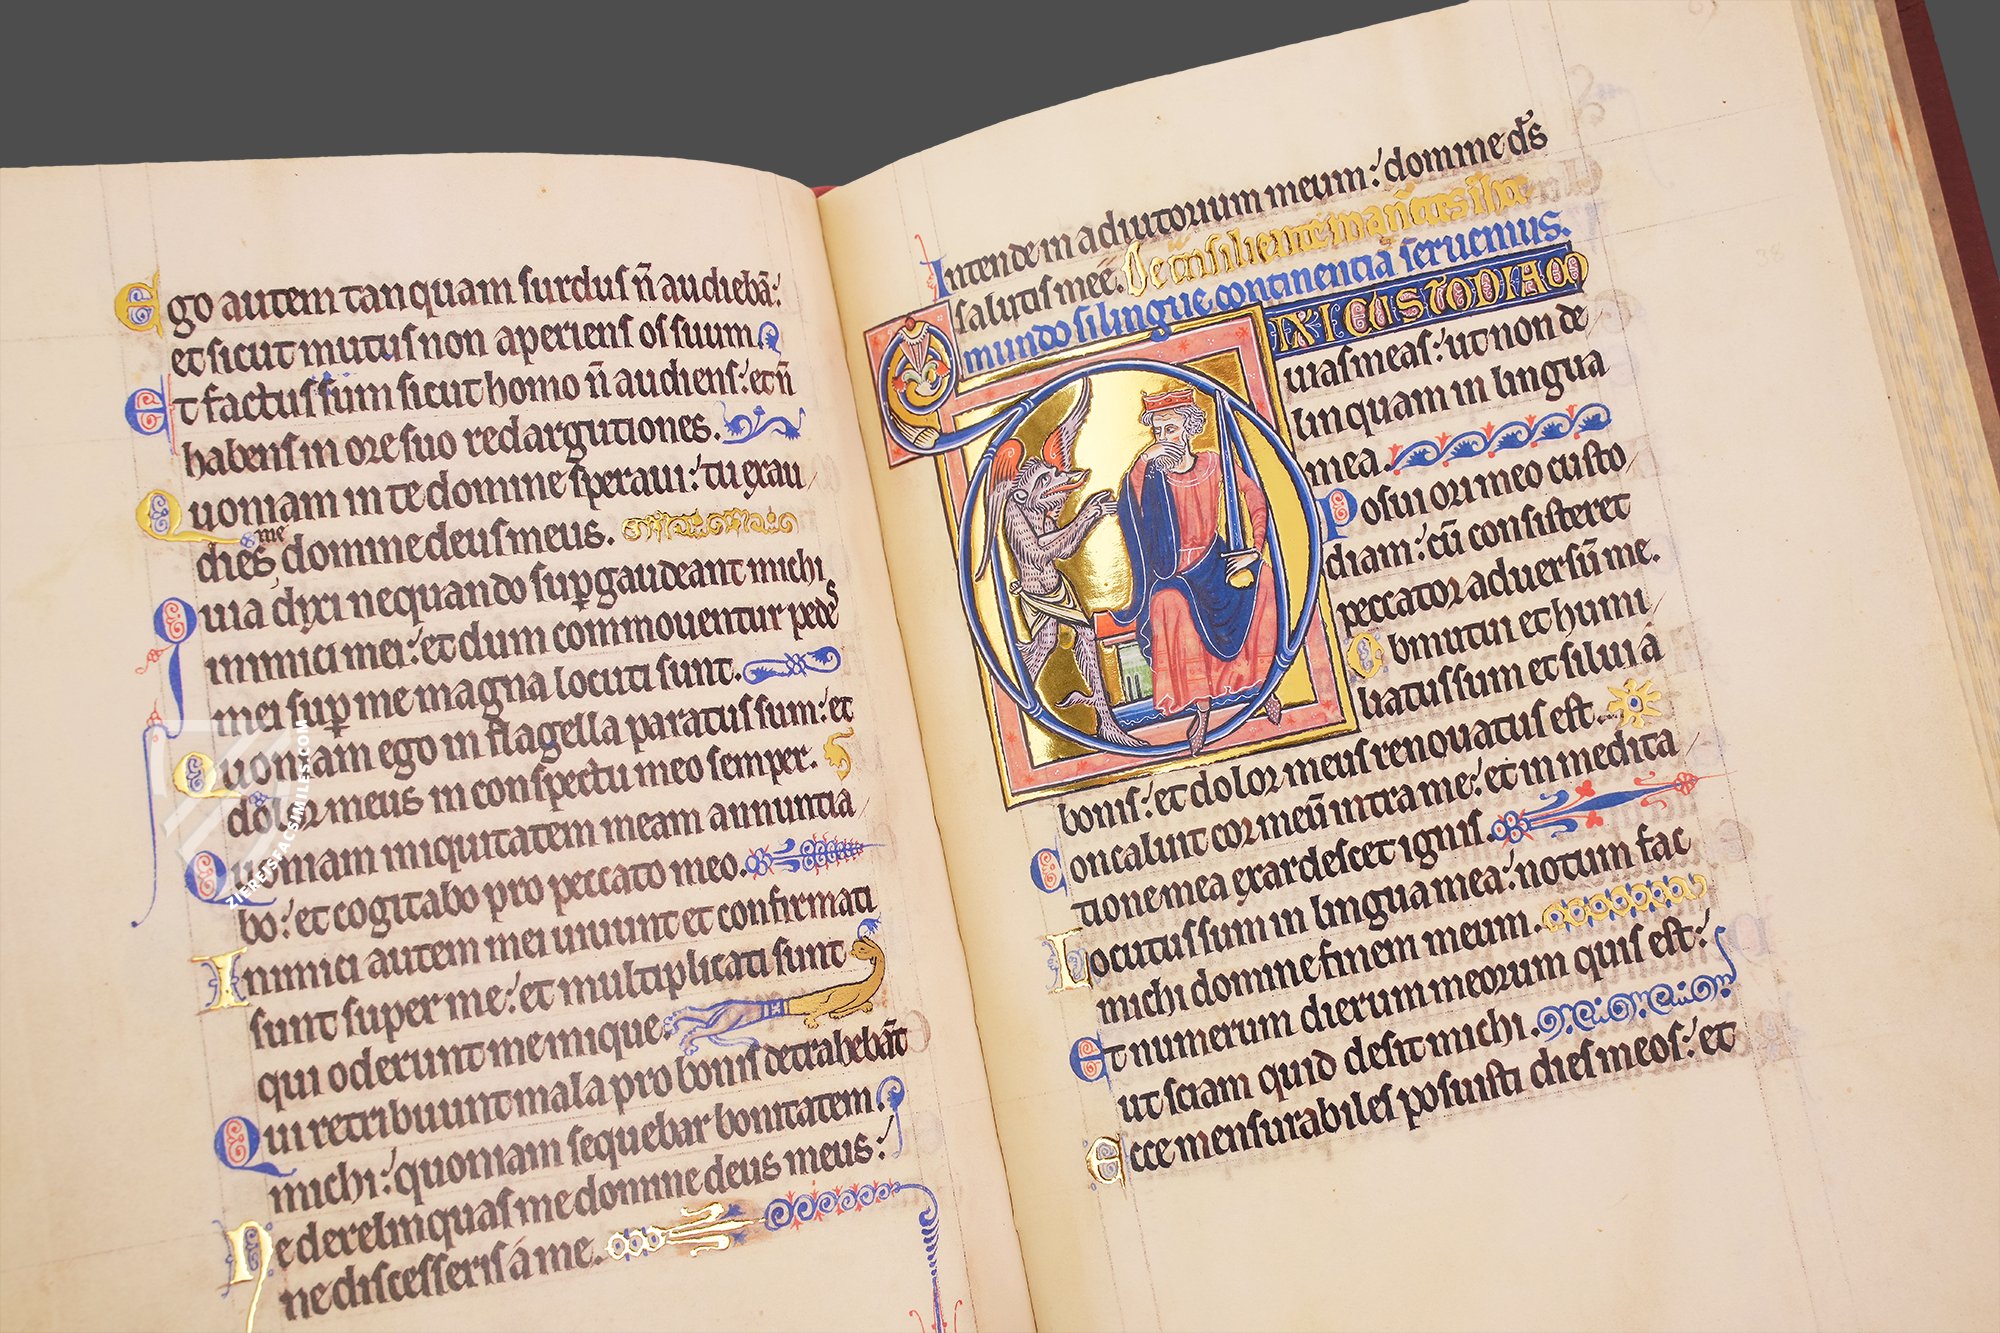 Ego autem tanquam surdus n̄ audiebā:
et sicut mutus non aperiens os suum.
Et factus sum sicut homo n̄ audiens: et n̄
habens in ore suo redargutiones.
Quoniam in te domine speraui: tu exau
dies me domine deus meus.
Quia dyxi nequando sup̱gaudeant michi
inimici mei: et dum commouentur pedes
mei sup̱ me magna locuti sunt.
Quoniam ego in flagella paratus sum: et
dolor meus in conspectu meo semper.
Quoniam iniquitatem meam annuntia
bo: et cogitabo pro peccato meo.
Inimici autem mei uiuunt et confirmati
sunt super me: et multiplicati sunt
qui oderunt me inique.
Qui retribuunt mala pro bonis detrahebāt
michi: quoniam sequebar bonitatem.
Ne derelinquas me domine deus meus:
ne discesseris á me.
Intende in adiutorium meum: domine d̄s
salutis meę.
mundo si lingue continentiā seruemus.
DIXI CUSTODIAM
uias meas: ut non de
linquam in lingua
mea.
Posui ori meo custo
diam: cū consisteret
peccator aduersū me.
Obmutui et humi
liatus sum et silui á
bonis: et dolor meus renouatus est.
Concaluit cor meū intra me: et in medita
tione mea exardescet ignis.
Locutus sum in lingua mea: notum fac
michi domine finem meum.
Et numerum dierum meorum quis est:
ut sciam quid desit michi.
Ecce mensurabiles posuisti dies meos: et
ZIEREISFACSIMILES.COM